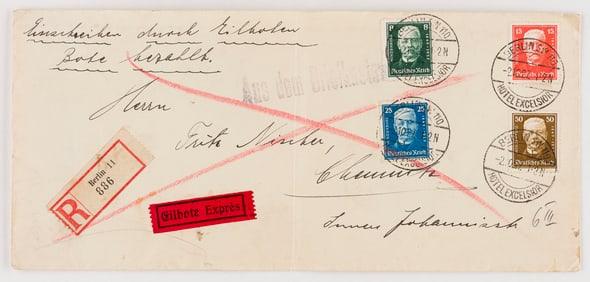 Einschreiben durch Eilboten
Bote bezahlt.
Aus dem Briefkasten
Herrn
Fritz Nischer,
Chemnitz
Innere Johannisstr 6 III
R
Berlin 11
886
Eilbote Exprès
8 8
Deutsches Reich
25 25
Deutsches Reich
15 15
Deutsches Reich
50 50
Deutsches Reich
BERLIN SW 110
HOTEL EXCELSIOR
BERLIN SW 110
HOTEL EXCELSIOR